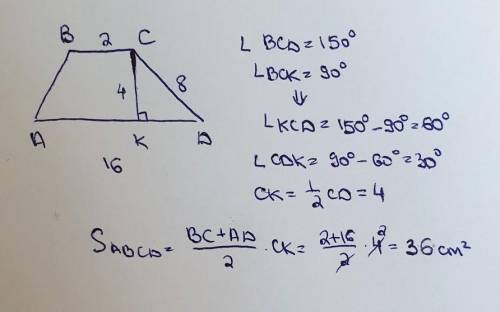 B 2 C
4 8
A K D
16
∠ BCD = 150°
∠BCK = 90°
⇓
∠KCD = 150° - 90° = 60°
∠ CDK = 90° - 60° = 30°
CK = 1/2 CD = 4
S ABCD = (BC + AD)/2 · CK = (2+16)/2 · 4² = 36 cm²